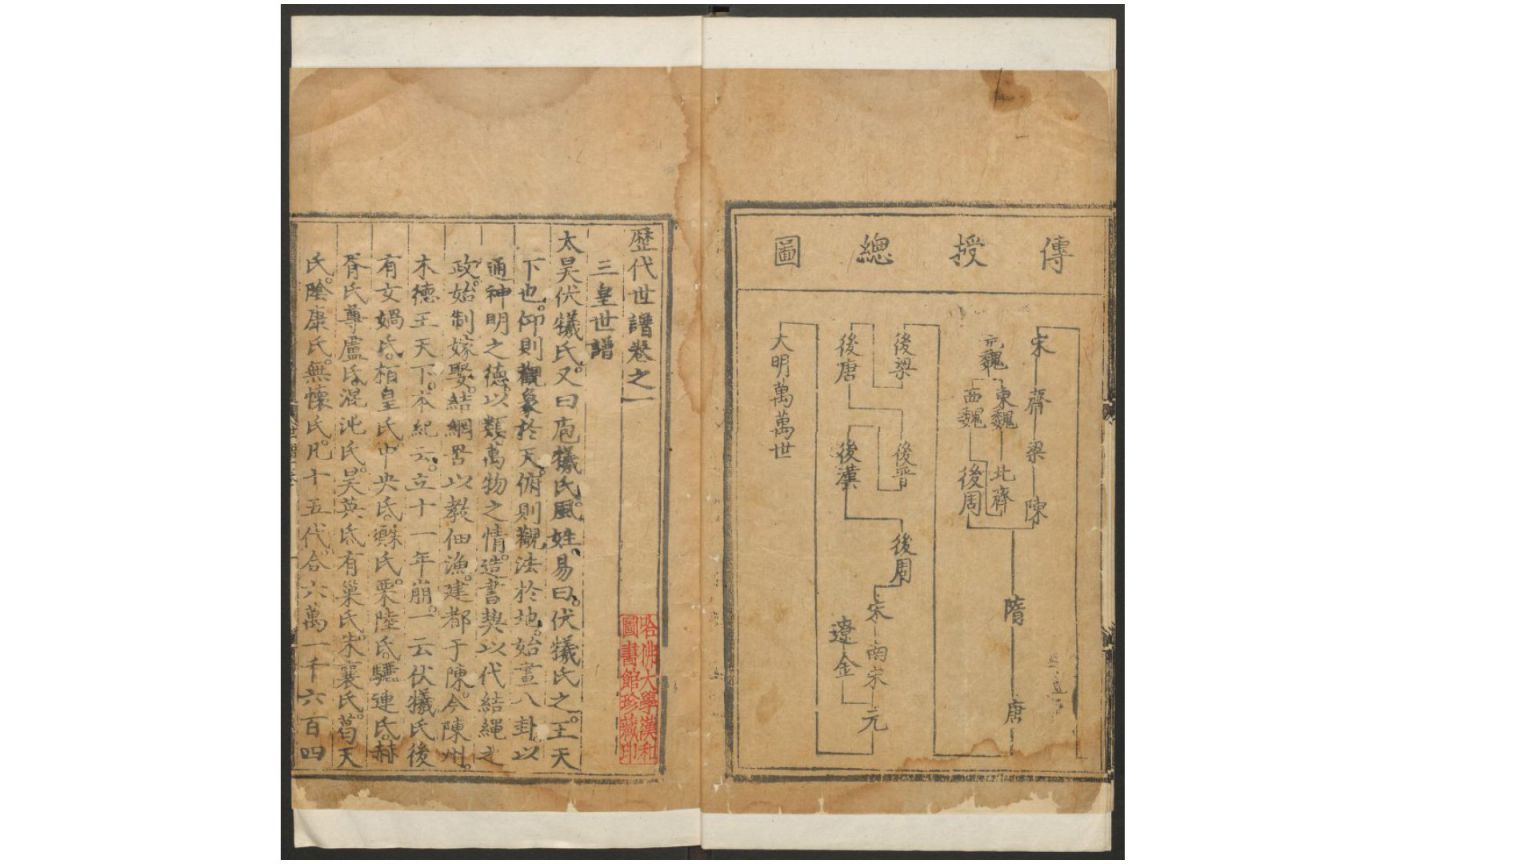 傳授總圖
宋 齊 梁 陳
元魏
東魏 北齊
西魏 後周
隋 唐
後梁 後晉 後周
宋 南宋 元
後唐 後漢
遼 金
大明萬萬世
歷代世譜卷之一
三皇世譜
太昊伏犧氏。又曰庖犧氏。風姓。易曰。伏犧氏之王天
下也。仰則觀象於天。俯則觀法於地。始畫八卦。以
通神明之德。以類萬物之情。造書契以代結繩之
政。始制嫁娶。結網罟以教佃漁。建都于陳。今陳州。
木德王天下。本紀云。立十一年崩。一云伏犧氏後
有女媧氏。栢皇氏。中央氏。氏。栗陸氏。驪連氏。赫
胥氏。尊盧氏。混沌氏。昊英氏。有巢氏。朱襄氏。葛天
氏。陰康氏。無懷氏。凡十五代。合六萬一千六百四
哈佛大學漢和
圖書館珍藏印